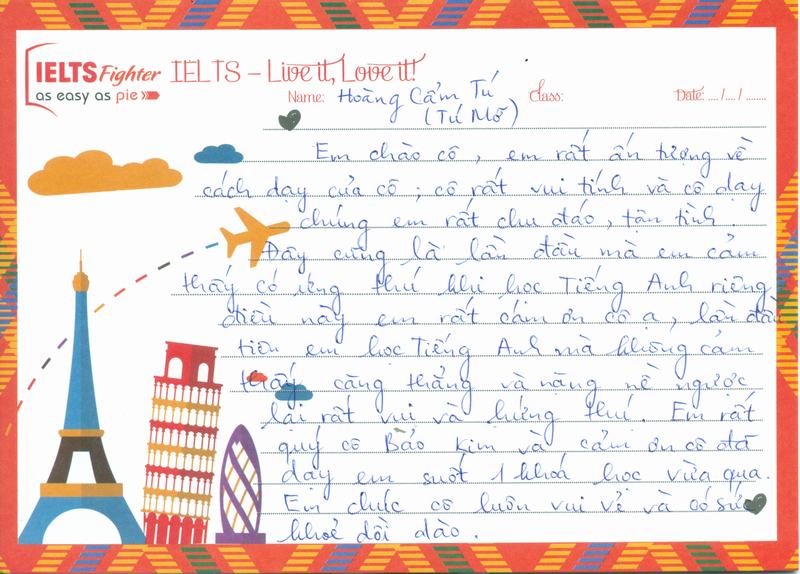 IELTS Fighter IELTS – Live it, Love it!
as easy as pie
Name: Hoàng Cẩm Tú Class: Date: .../.../......
(Tú Mỡ)
Em chào cô, em rất ấn tượng về
cách dạy của cô; cô rất vui tính và cô dạy
chúng em rất chu đáo, tận tình.
Đây cũng là lần đầu mà em cảm
thấy có ứng thú khi học Tiếng Anh riêng
điều này em rất cảm ơn cô ạ, lần đầu
tiên em học Tiếng Anh mà không cảm
thấy căng thẳng và nặng nề ngược
lại rất vui và hứng thú. Em rất
quý cô Bảo Kim và cảm ơn cô đã
dạy em suốt 1 khoá học vừa qua.
Em chúc cô luôn vui vẻ và có sức
khoẻ dồi dào.